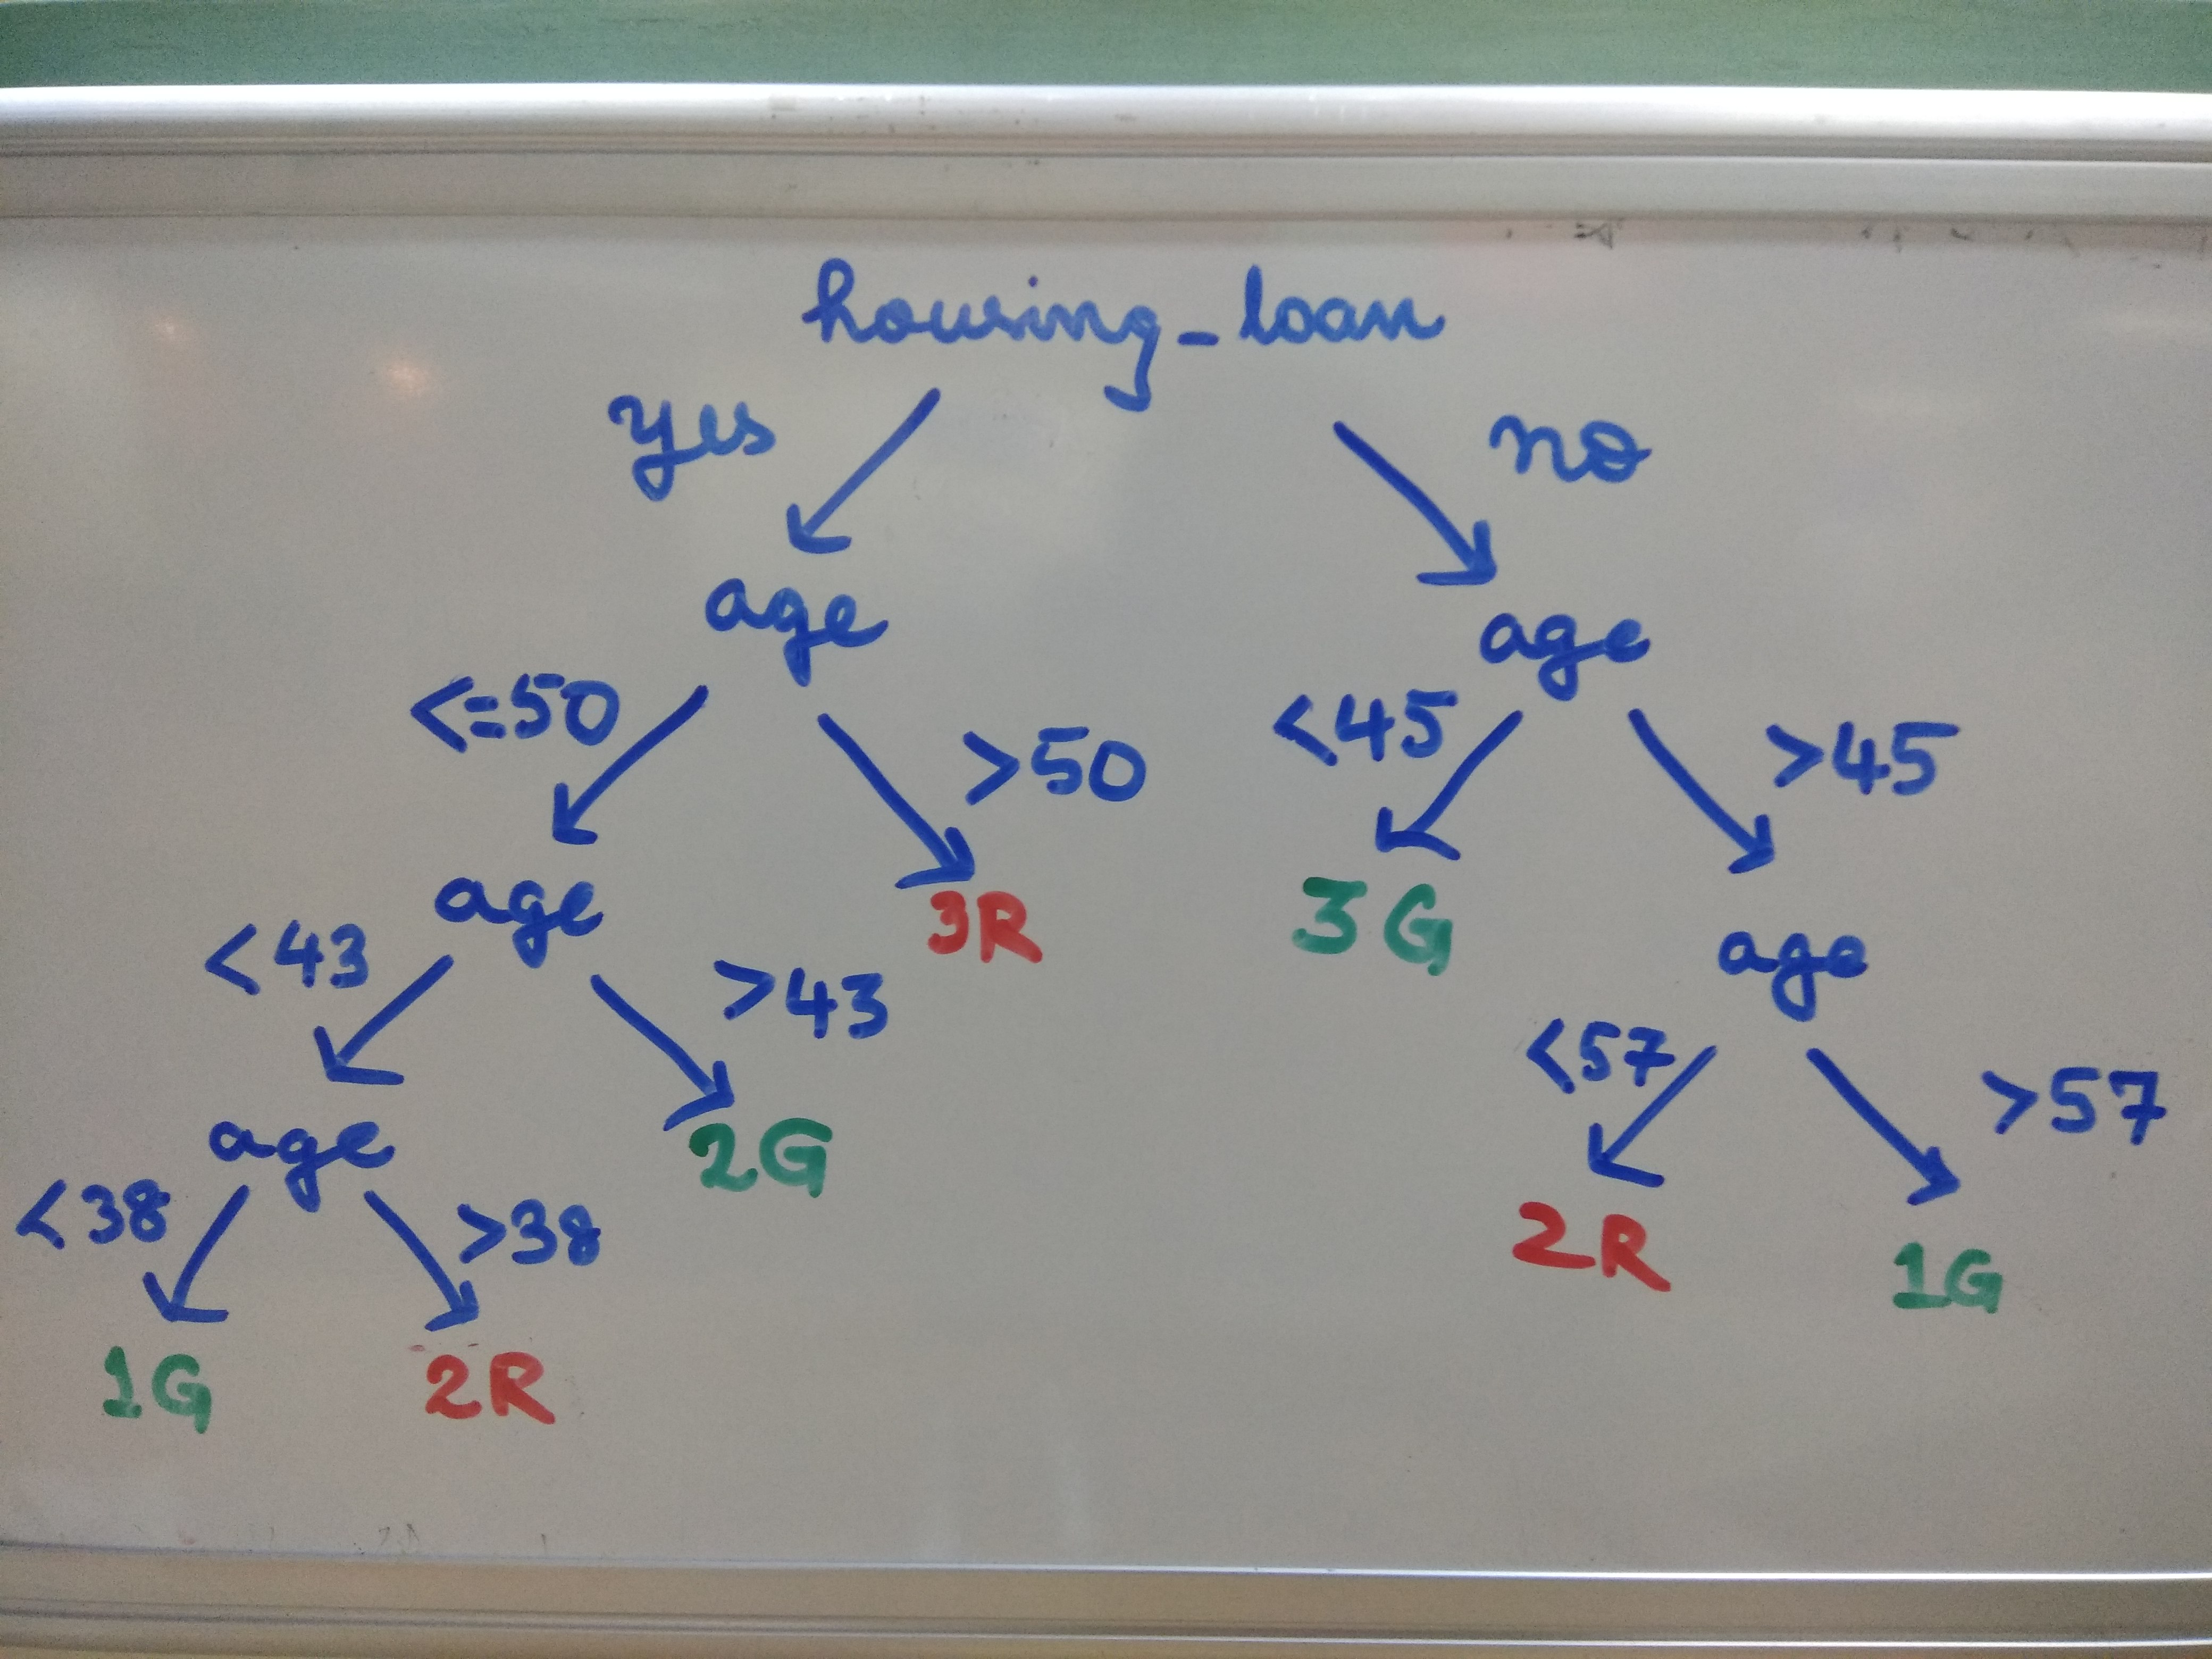 housing_loan
yes
no
age
age
<=50
>50
<45
>45
age
3R
3G
age
<43
>43
<57
>57
age
2G
2R
1G
<38
>38
1G
2R